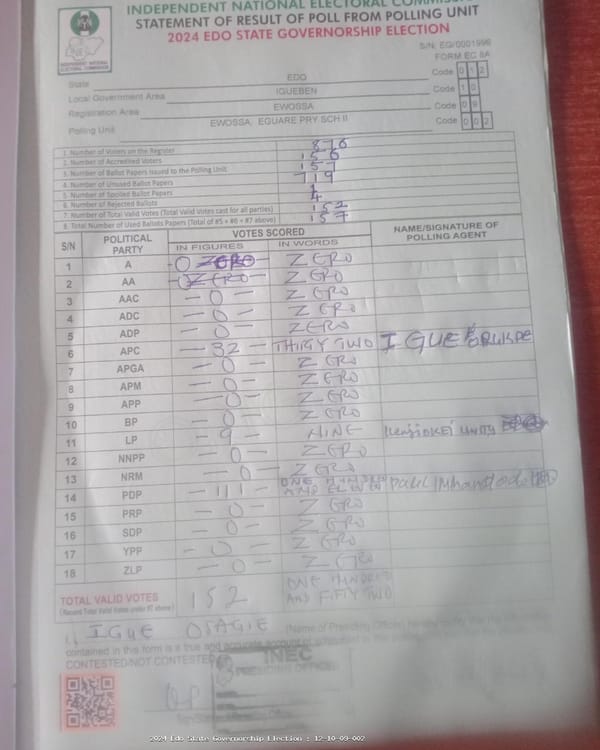 INDEPENDENT NATIONAL ELECTORAL COMMISS
STATEMENT OF RESULT OF POLL FROM POLLING UNIT
2024 EDO STATE GOVERNORSHIP ELECTION
INDEPENDENT NATIONAL ELECTORAL COMMISSION
S/N: EG/0001996
FORM EC 8A
State EDO Code 0 1 2
Local Government Area IGUEBEN Code 1 0
Registration Area EWOSSA Code 0 9
Polling Unit EWOSSA, EGUARE PRY SCH II Code 0 0 2
1. Number of Voters on the Register 876
2. Number of Accredited Voters 156
3. Number of Ballot Papers Issued to the Polling Unit 
4. Number of Unused Ballot Papers 719
5. Number of Spoiled Ballot Papers 1
6. Number of Rejected Ballots 4
7. Number of Total Valid Votes (Total Valid Votes cast for all parties) 152
8. Total Number of Used Ballots Papers (Total of #5 + #6 + #7 above) 157
S/N POLITICAL PARTY VOTES SCORED NAME/SIGNATURE OF POLLING AGENT
IN FIGURES IN WORDS
1 A 0 ZERO ZERO
2 AA 0 ZERO ZERO
3 AAC - 0 - ZERO
4 ADC - 0 - ZERO
5 ADP - 0 - ZERO
6 APC - 32 - THIRTY TWO IGUE
7 APGA - 0 - ZERO
8 APM - 0 - ZERO
9 APP - 0 - ZERO
10 BP - 0 - ZERO
11 LP - 9 - NINE
12 NNPP - 0 - ZERO
13 NRM - 0 - ZERO
14 PDP - 111 - ONE HUNDRED AND ELEVEN
15 PRP - 0 - ZERO
16 SDP - 0 - ZERO
17 YPP - 0 - ZERO
18 ZLP - 0 - ZERO
TOTAL VALID VOTES 152 ONE HUNDRED AND FIFTY TWO
(Record Total Valid Votes under #7 above)
I, IGUE OSAGIE (Name of Presiding Officer) hereby
contained in this form is a true and accurate account of
CONTESTED/NOT CONTESTED
INEC
PRESIDING OFFICER
2024 Edo State Governorship Election : 12-10-09-002